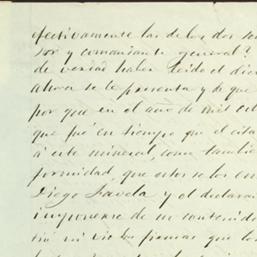 efectivamente las de los dos se
sor y comandante general?
de verdad haber leido el
ahora se le presenta y de que
por que en el año de mil
que fué en tiempo que el cita
á este mineral, como tambien
formidad, que estos se los
Diego Favela y el declara
imponerse de su contenido
tró ni vió las firmas que